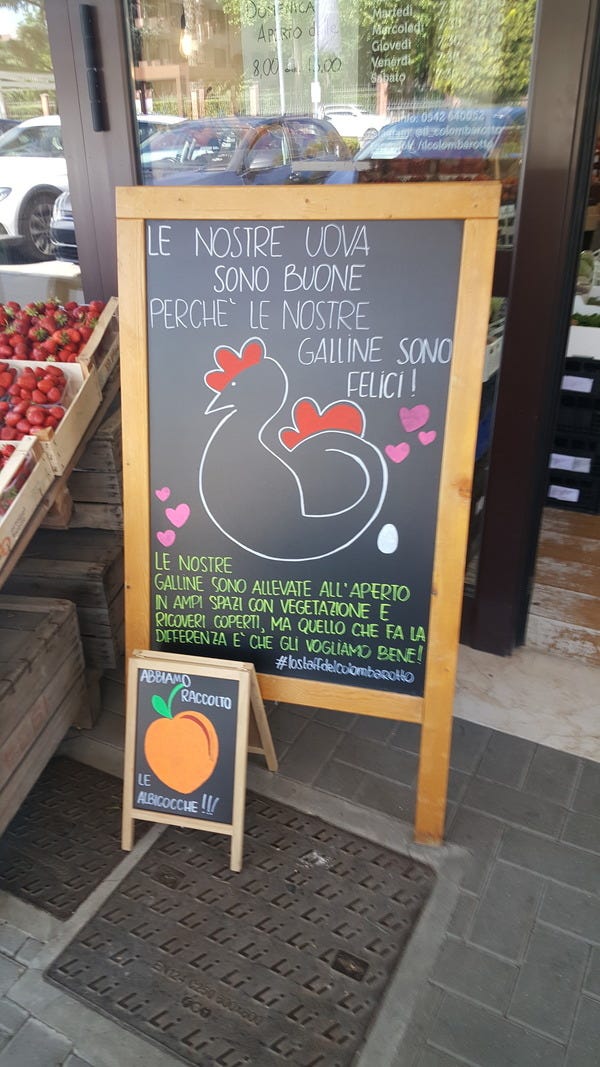 DOMENICA
APERTO
8,00 13,00
Martedì
Mercoledì
Giovedì
Venerdì
Sabato
0542 640052
@il_colombarotto
/ilcolombarotto
LE NOSTRE UOVA
SONO BUONE
PERCHE` LE NOSTRE
GALLINE SONO
FELICI!
LE NOSTRE
GALLINE SONO ALLEVATE ALL'APERTO
IN AMPI SPAZI CON VEGETAZIONE E
RICOVERI COPERTI, MA QUELLO CHE FA LA
DIFFERENZA E` CHE GLI VOGLIAMO BENE!
#lostaffdelcolombarotto
ABBIAMO
RACCOLTO
LE
ALBICOCCHE !!!